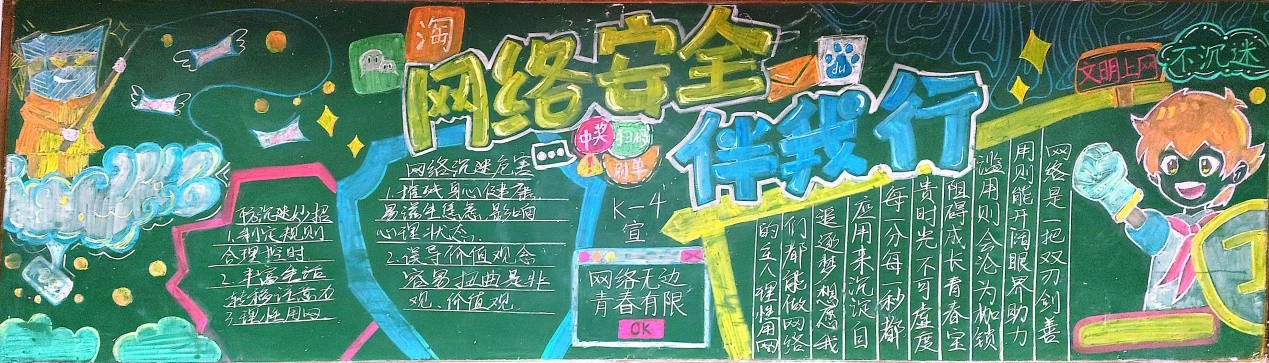 淘
网络安全
伴我行
du
文明上网
不沉迷
中奖
扫码
刷单
K-4
宣
网络无边
青春有限
OK
防沉迷妙招
1.制定规则
合理控时
2.丰富生活
转移注意力
3.理性用网
网络沉迷危害
1.摧残身心健康
易滋生焦虑,影响
心理状态,
2.误导价值观念
容易扭曲是非
观、价值观.
网络是一把双刃剑善
用则能开阔眼界助力
滥用则会沦为枷锁
阻碍成长青春宝
贵时光不可虚度
每一分每一秒都
应用来沉淀自
追逐梦想愿我
们都能做网络
的主人理性用网